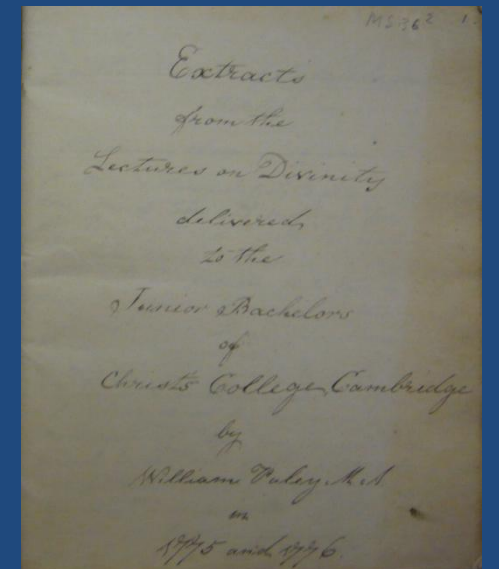 MS 362 1.
Extracts
from the
Lectures on Divinity
delivered
to the
Junior Bachelors
of
Christs College, Cambridge
by
William Paley. M. A
in
1775 and 1776.